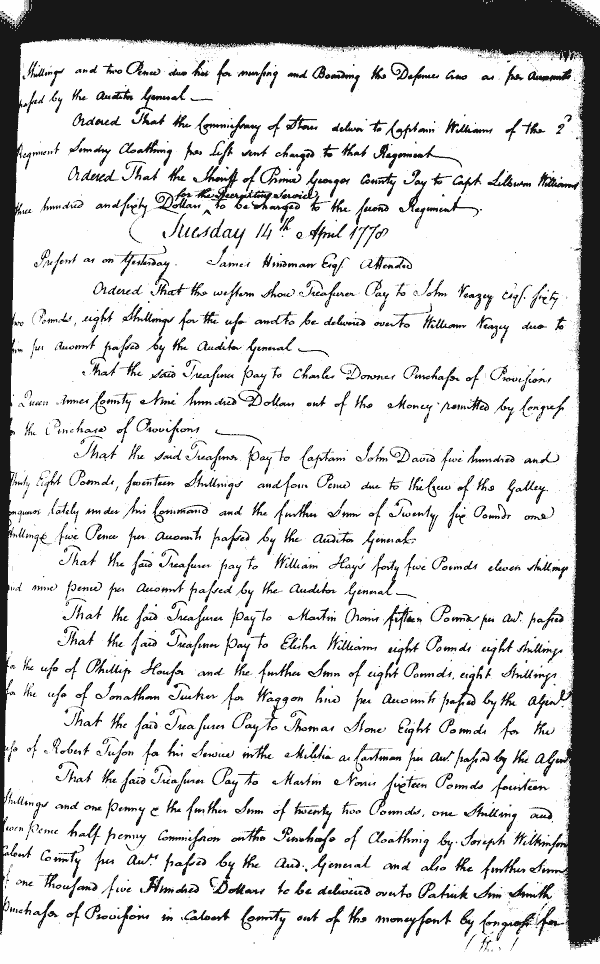 Shillings and two Pence due her for nursing and Boarding the Defences Crew as per Accounts
passed by the Auditor General —
Ordered That the Commissary of Stores deliver to Captain Williams of the 2d
Regiment Sundry Cloathing per List sent charged to that Regiment
Ordered That the Sheriff of Prince Georges County Pay to Capt Lilburn Williams
for the Recruiting Service
three hundred and sixty Dollars to be charged to the second Regiment.
Tuesday 14th April 1778
Present as on Yesterday. James Hindman Esqr. Attended
Ordered That the western shore Treasurer Pay to John Veazey Esqr. sixty
two Pounds, eight Shillings for the use and to be delivered over to William Veazey due to
him per account passed by the Auditor General —
That the said Treasurer pay to Charles Downes Purchaser of Provisions
Queen Annes County Nine hundred Dollars out of the Money remitted by Congress
for the Purchase of Provisions
That the said Treasurer Pay to Captain John David five hundred and
thirty Eight Pounds, seventeen Shillings and four Pence due to the Crew of the Galley
Conqueror lately under his Command and the further Sum of Twenty six Pounds one
Shilling & five Pence per Accounts passed by the Auditor General.
That the said Treasurer pay to William Hays forty five Pounds eleven shillings
and nine pence per Account passed by the Auditor General —
That the said Treasurer Pay to Martin Norris fifteen Pounds per Acct. passed
That the said Treasurer Pay to Elisha Williams eight Pounds eight shillings
for the use of Phillip Houser and the further Sum of eight Pounds, eight Shillings
for the use of Jonathan Tucker for Waggon hire per Accounts passed by the A Genl.
That the said Treasurer Pay to Thomas Stone Eight Pounds for the
use of Robert Tuson for his Service in the Militia as fartman per Acct. passed by the A Genl.
That the said Treasurer Pay to Martin Norris sixteen Pounds fourteen
Shillings and one penny & the further Sum of twenty two Pounds, one Shilling and
seven pence half penny Commission on the Purchase of Cloathing by Joseph Wilkinson
Calvert County per Acct. passed by the Aud. General and also the further Sum
of one thousand five Hundred Dollars to be delivered over to Patrick Sim Smith
Purchaser of Provisions in Calvert County out of the money sent by Congress for
(the)